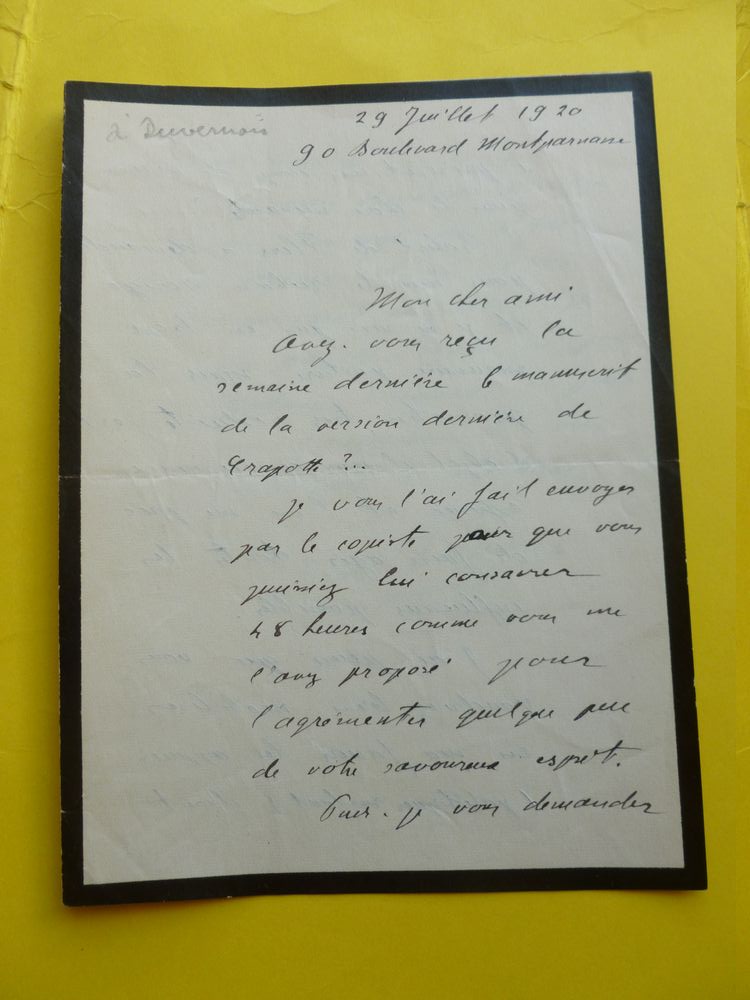 à Duvernois
29 Juillet 1920
90 Boulevard Montparnasse
Mon cher ami
Avez-vous reçu la
semaine dernière le manuscrit
de la version dernière de
Crapotte ?..
Je vous l'ai fait envoyer
par le copiste pour que vous
puissiez lui consacrer
48 heures comme vous me
l'avez proposé pour
l'agrémenter quelque peu
de votre savoureux esprit.
Puis-je vous demander